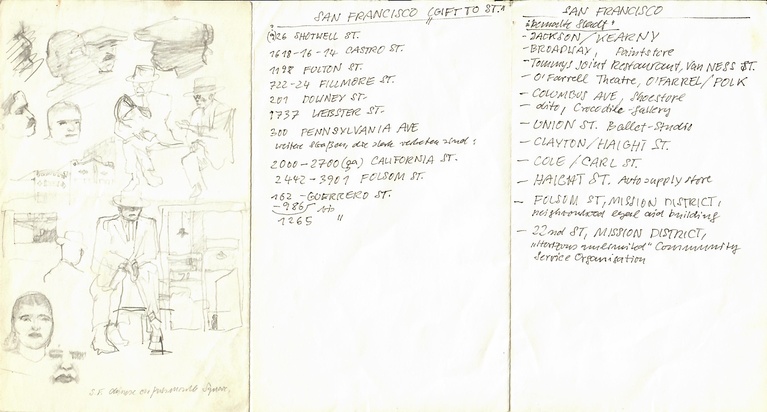 SAN FRANCISCO „GIFT TO ST."
926 SHOTWELL ST.
1618-16-14 CASTRO ST.
1198 FULTON ST.
722-24 FILLMORE ST.
201 DOWNEY ST.
1737 WEBSTER ST.
300 PENNSYLVANIA AVE
weitere Straßen, die stark vertreten sind:
2000-2700 (ga) CALIFORNIA ST.
2442-3901 FOLSOM ST.
162-GUERRERO ST.
986
1265 "
SAN FRANCISCO
"bemalte Stadt":
- JACKSON/KEARNY
- BROADWAY, Paintstore
- Tommys Joint Restaurant, Van NESS ST.
- O'Farrell Theatre, O'FARREL/POLK
- COLUMBUS AVE, Shoestore
- dito, Crocodile-gallery
- UNION ST. Ballet-Studio
- CLAYTON/HAIGHT ST.
- COLE/CARL ST.
- HAIGHT ST. Autosupply store
- FOLSOM ST, MISSION DISTRICT,
neighbourhood legal aid building
- 22nd ST, MISSION DISTRICT,
"Horizons unlimited" Community
Service Organisation